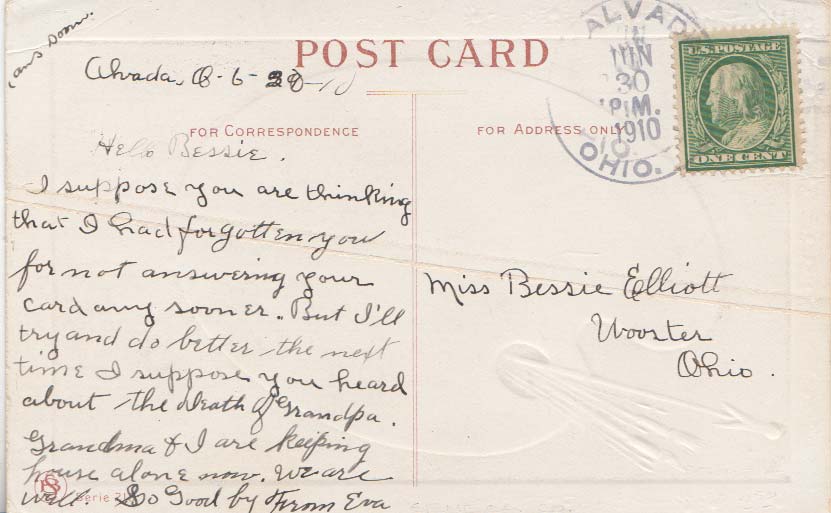 (ans soon.
POST CARD
Alvada, O-6-29-10
FOR CORRESPONDENCE
Hello Bessie.
I suppose you are thinking
that I had forgotten you
for not answering your
card any sooner. But I'll
try and do better the next
time I suppose you heard
about the death of Grandpa.
Grandma & I are keeping
house alone now. We are
well. So Good by From Eva
Serie
FOR ADDRESS ONLY
ALVADA
JUN
30
P.M.
1910
OHIO.
U.S. POSTAGE
ONE CENT
Miss Bessie Elliott
Wooster
Ohio.